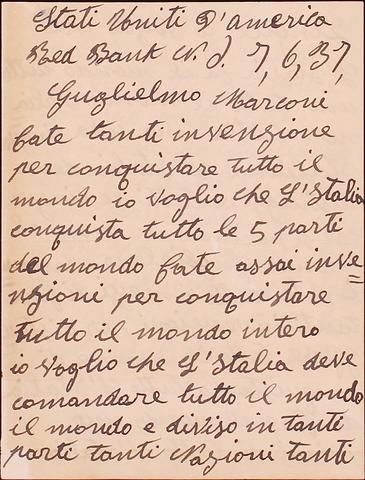 Stati Uniti D'america
Red Bank N. J. 7, 6, 37,
Guglielmo Marconi
fate tanti invenzione
per conquistare tutto il
mondo io voglio che L'Italia
conquista tutto le 5 parti
del mondo fate assai inve=
nzioni per conquistare
tutto il mondo intero
io voglio che L'Italia deve
comandare tutto il mondo
il mondo e diviso in tante
parti tanti Nazioni tanti